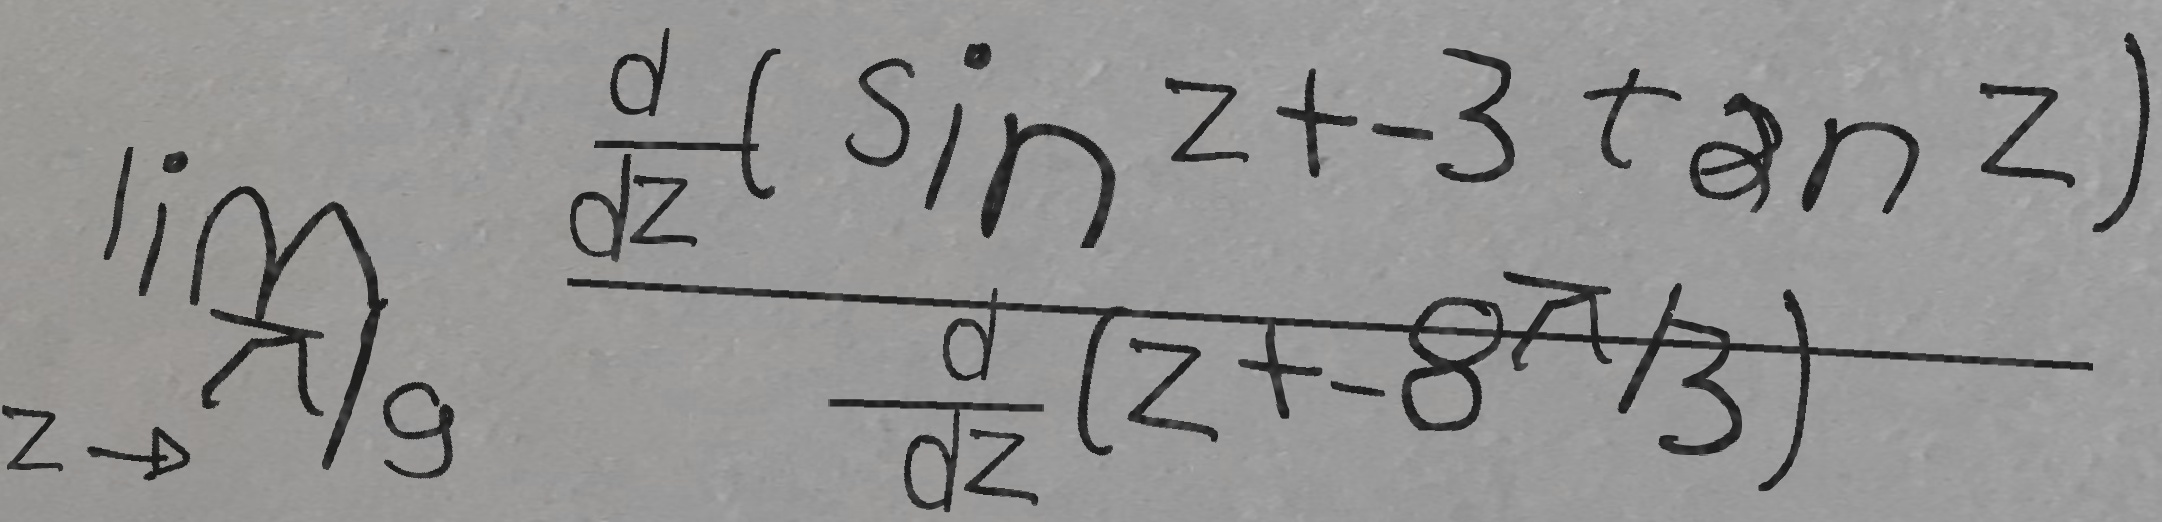 lim z→π/9 \frac{\frac{d}{dz}(sin z+-3 tan z)}{\frac{d}{dz}(z+-8π/3)}